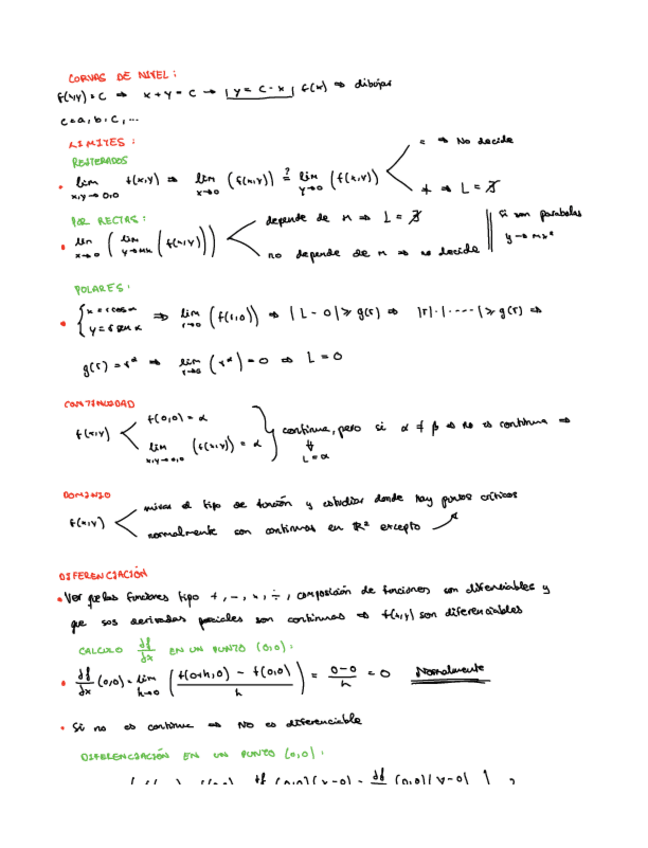 CORVAS DE NIVEL:
f(x,y) = C ⇒ x + y = C → | y = C - x | f(x) ⇒ dibujar
C = a, b, c, ...
LIMITES:
REITERADOS
• lim x,y→0,0 f(x,y) ⇒ lim x→0 (f(x,y)) =? lim y→0 (f(x,y))
= ⇒ No decide
≠ ⇒ L = ∄
POR RECTAS:
• lim x→0 ( lim y→mx ( f(x,y) ) )
depende de m ⇒ L = ∄
no depende de m ⇒ no decide
si son parabolas
y → mx²
POLARES:
• { x = r cos α
y = r sen α ⇒ lim r→0 (f(r,θ)) ⇒ | L - 0 | ≥ g(r) ⇒ |r| · | ···· | ≥ g(r) ⇒
g(r) = rᵅ ⇒ lim r→0 (rᵅ) = 0 ⇒ L = 0
CONTINUIDAD
f(x,y)
f(0,0) = α
lim x,y→0,0 (f(x,y)) = α
continua, pero si α ≠ β ⇒ no es continua ⇒
⇓
L = α
DOMINIO
f(x,y)
miras el tipo de función y estudiar donde hay puntos críticos
normalmente son continuas en ℝ² excepto
DIFERENCIACIÓN
• Ver que las funciones tipo +, -, ×, ÷, composición de funciones son diferenciables y
que sos derivadas parciales son continuas ⇒ f(x,y) son diferenciables
CALCULO df/dx EN UN PUNTO (0,0):
• df/dx (0,0) = lim h→0 ( f(0+h,0) - f(0,0) / h ) = 0-0 / h = 0 Normalmente
• Si no es continua ⇒ NO es diferenciable
DIFERENCIACIÓN EN UN PUNTO (0,0):